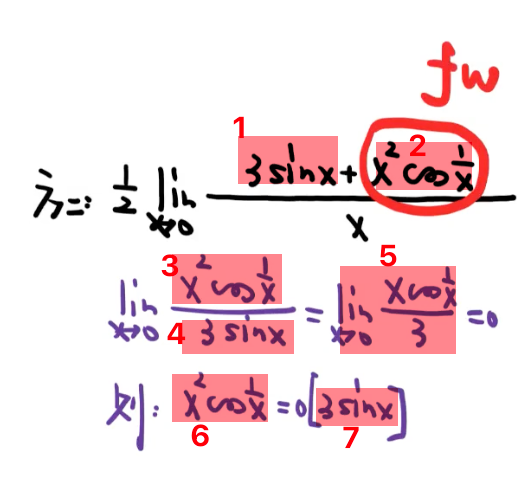 fw
方法二: 1/2 lim x→0 (3sinx + x² cos 1/x) / x
1
2
lim x→0 (x² cos 1/x) / (3sinx) = lim x→0 (x cos 1/x) / 3 = 0
3
4
5
则: x² cos 1/x = o[3sinx]
6
7